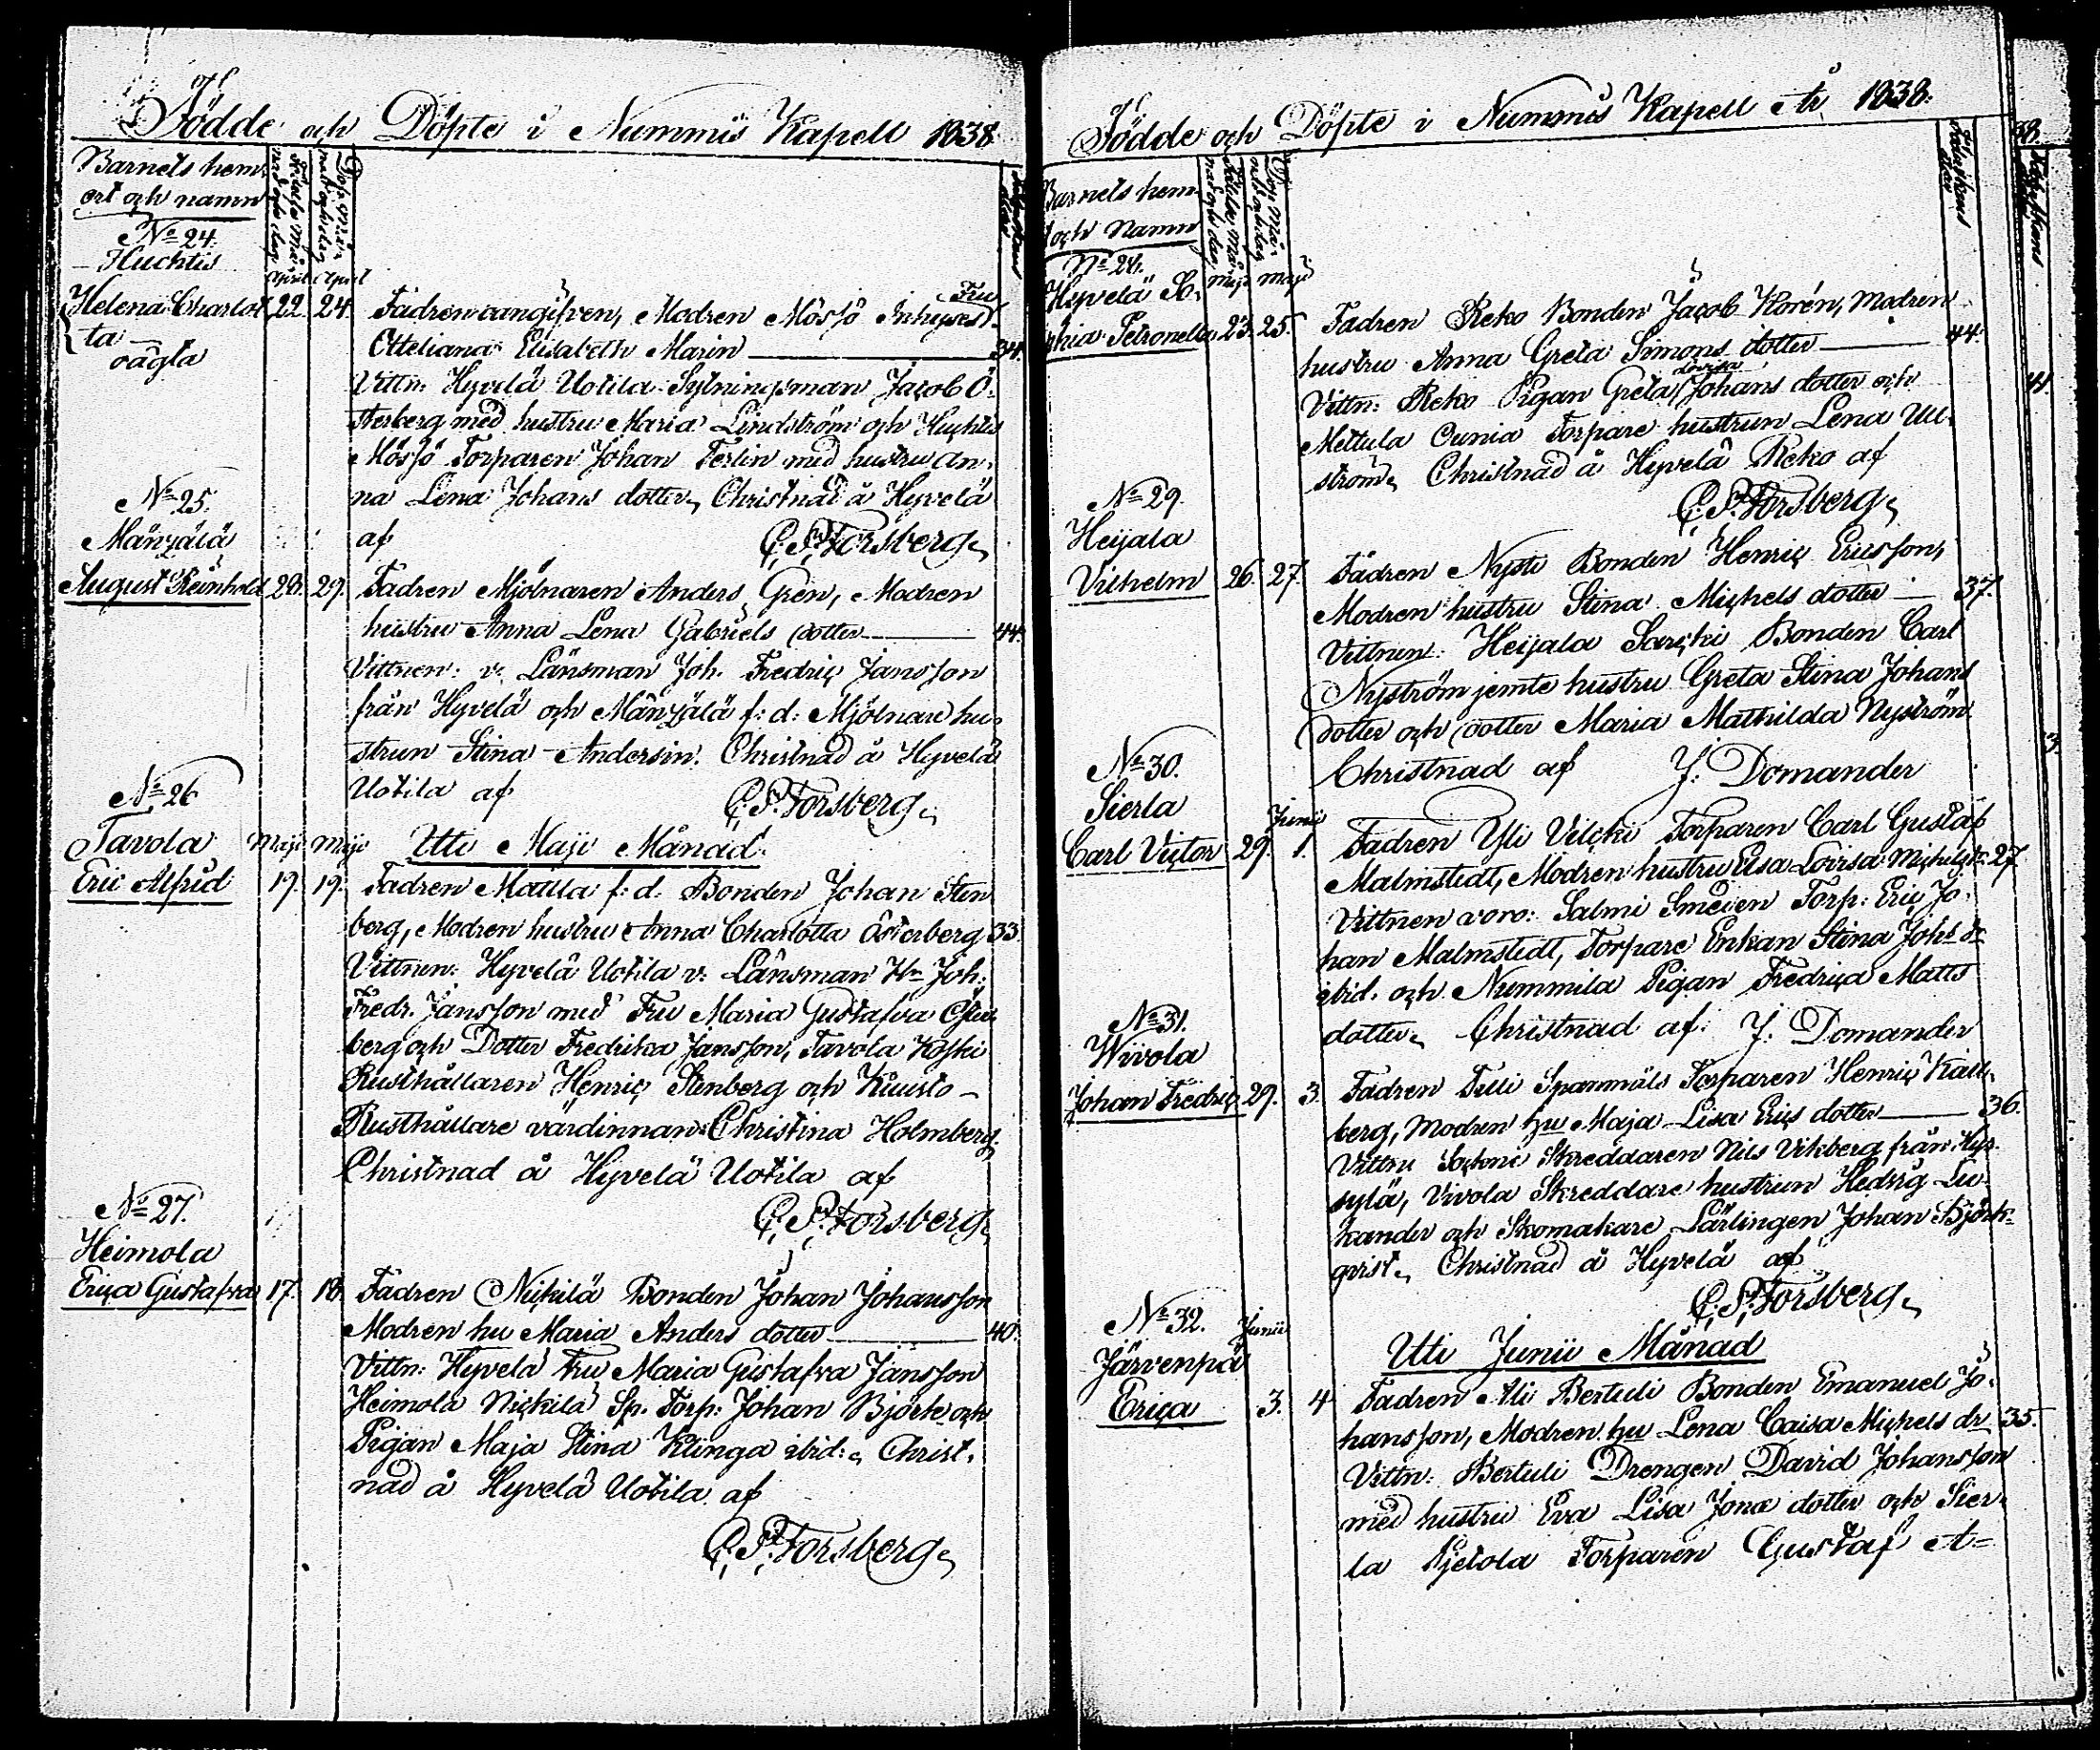 Födde och Döpte i Nummis Kapell 1838
Barnets hem-
ort och namn
No 24.
Huchtis
April April
Helena Charlot- 22. 24. Fadren oangifven, Modren Mösjö Inhyses Fru
ta Otteliana Elisabeth Marin 34.
oägta
Vittn: Hyvelä Uotila Sytningsman Jacob Ö-
sterberg med hustru Maria Lindström och Huchtis
Mösjö Torparen Johan Ferlin med hustru An-
na Lena Johans dotter, Christnad å Hyvelä
af C. P. Forsberg
No 25.
Mänzälä
August Reinhold 28. 29. Fadren Mjölnaren Anders Gren, Modren
hustru Anna Lena Gabriels dotter 44.
Vittnen: v. Länsman Joh. Fredric Jansson
från Hyvelä och Mänzälä f: d: Mjölnare hu-
strun Stina Andersin. Christnad å Hyvelä
Uotila af C. P. Forsberg
No 26
Tavola Maji Maji Uti Maji Månad
Eric Alfrid 19. 19. Fadren Mattila f: d: Bonden Johan Sten
berg, Modren hustru Anna Charlotta Österberg 33.
Vittnen: Hyvelä Uotila v: Länsman Hr Joh:
Fredr. Jansson med Fru Maria Gustafva
berg och Dotter Fredrika Jansson, Tavola Koski
Rusthållaren Henric Stenberg och Kuusto
Rusthållare värdinnan Christina Holmberg.
Christnad å Hyvelä Uotila af
C. P. Forsberg
No 27.
Heimola
Erica Gustafva 17. 18. Fadren Nickilä Bonden Johan Johansson
Modren hu Maria Anders dotter 40.
Vittn: Hyvelä Fru Maria Gustafva Jansson
Heimola Nickilä Sp. Torp: Johan Björk och
Pigan Maja Stina Klinga ibid: Christ-
nad å Hyvelä Uotila af
C. P. Forsberg
Födde och Döpte i Nummis Kapell År 1838.
Barnets hem-
och Namn
No 28.
Hyvelä So- Maji Maji
phia Petronella 23. 25. Fadren Reko Bonden Jacob Korén, Modren
hustru Anna Greta Simons dotter 44.
Vittn: Reko Pigan Greta Lovisa Johans dotter och
Mettula Ounia Torpare hustrun Lena Uu-
ström, Christnad å Hyvelä Reko af
C. P. Forsberg
No 29.
Heijala
Vilhelm 26. 27. Fadren Nysti Bonden Henric Ericsson,
Modren hustru Stina Michels dotter 37.
Vittnen: Heijala Sarcki Bonden Carl
Nyström jemte hustru Greta Stina Johans
dotter och dotter Maria Mathilda Nyström
Christnad af J. Domander
No 30.
Sierla Junii
Carl Victor 29. 1. Fadren Yli Vilcki Torparen Carl Gustaf
Malmstedt, Modren hustru Elsa Lovisa Michels dr 27
Vittnen voro: Salmi Smeden Torp: Eric Jo-
han Malmstedt, Torpare Enkan Stina Johs dr
ibid. och Nummila Pigan Fredrica Matts
dotter. Christnad af J. Domander
No 31.
Wivola
Johan Fredric 29. 3. Fadren Tuli Spannmåls Torparen Henric Käll-
berg, Modren hu Maja Lisa Erics dotter 36.
Vittn: Skreddaren Nils Vikberg från
sylä, Vivola Skreddare hustrun Hedvig Lu-
kander och Skomakare Lärlingen Johan Björk-
qvist, Christnad å Hyvelä af
C. P. Forsberg
No 32. Junii Uti Junii Månad
Järvenpä
Erica 3. 4 Fadren Ali Bertuli Bonden Emanuel Jo-
hansson, Modren hu Lena Caisa Michels dr 35.
Vittn: Bertuli Drengen David Johansson
med hustru Eva Lisa Jonæ dotter och Sier-
la Pjetola Torparen Gustaf A=